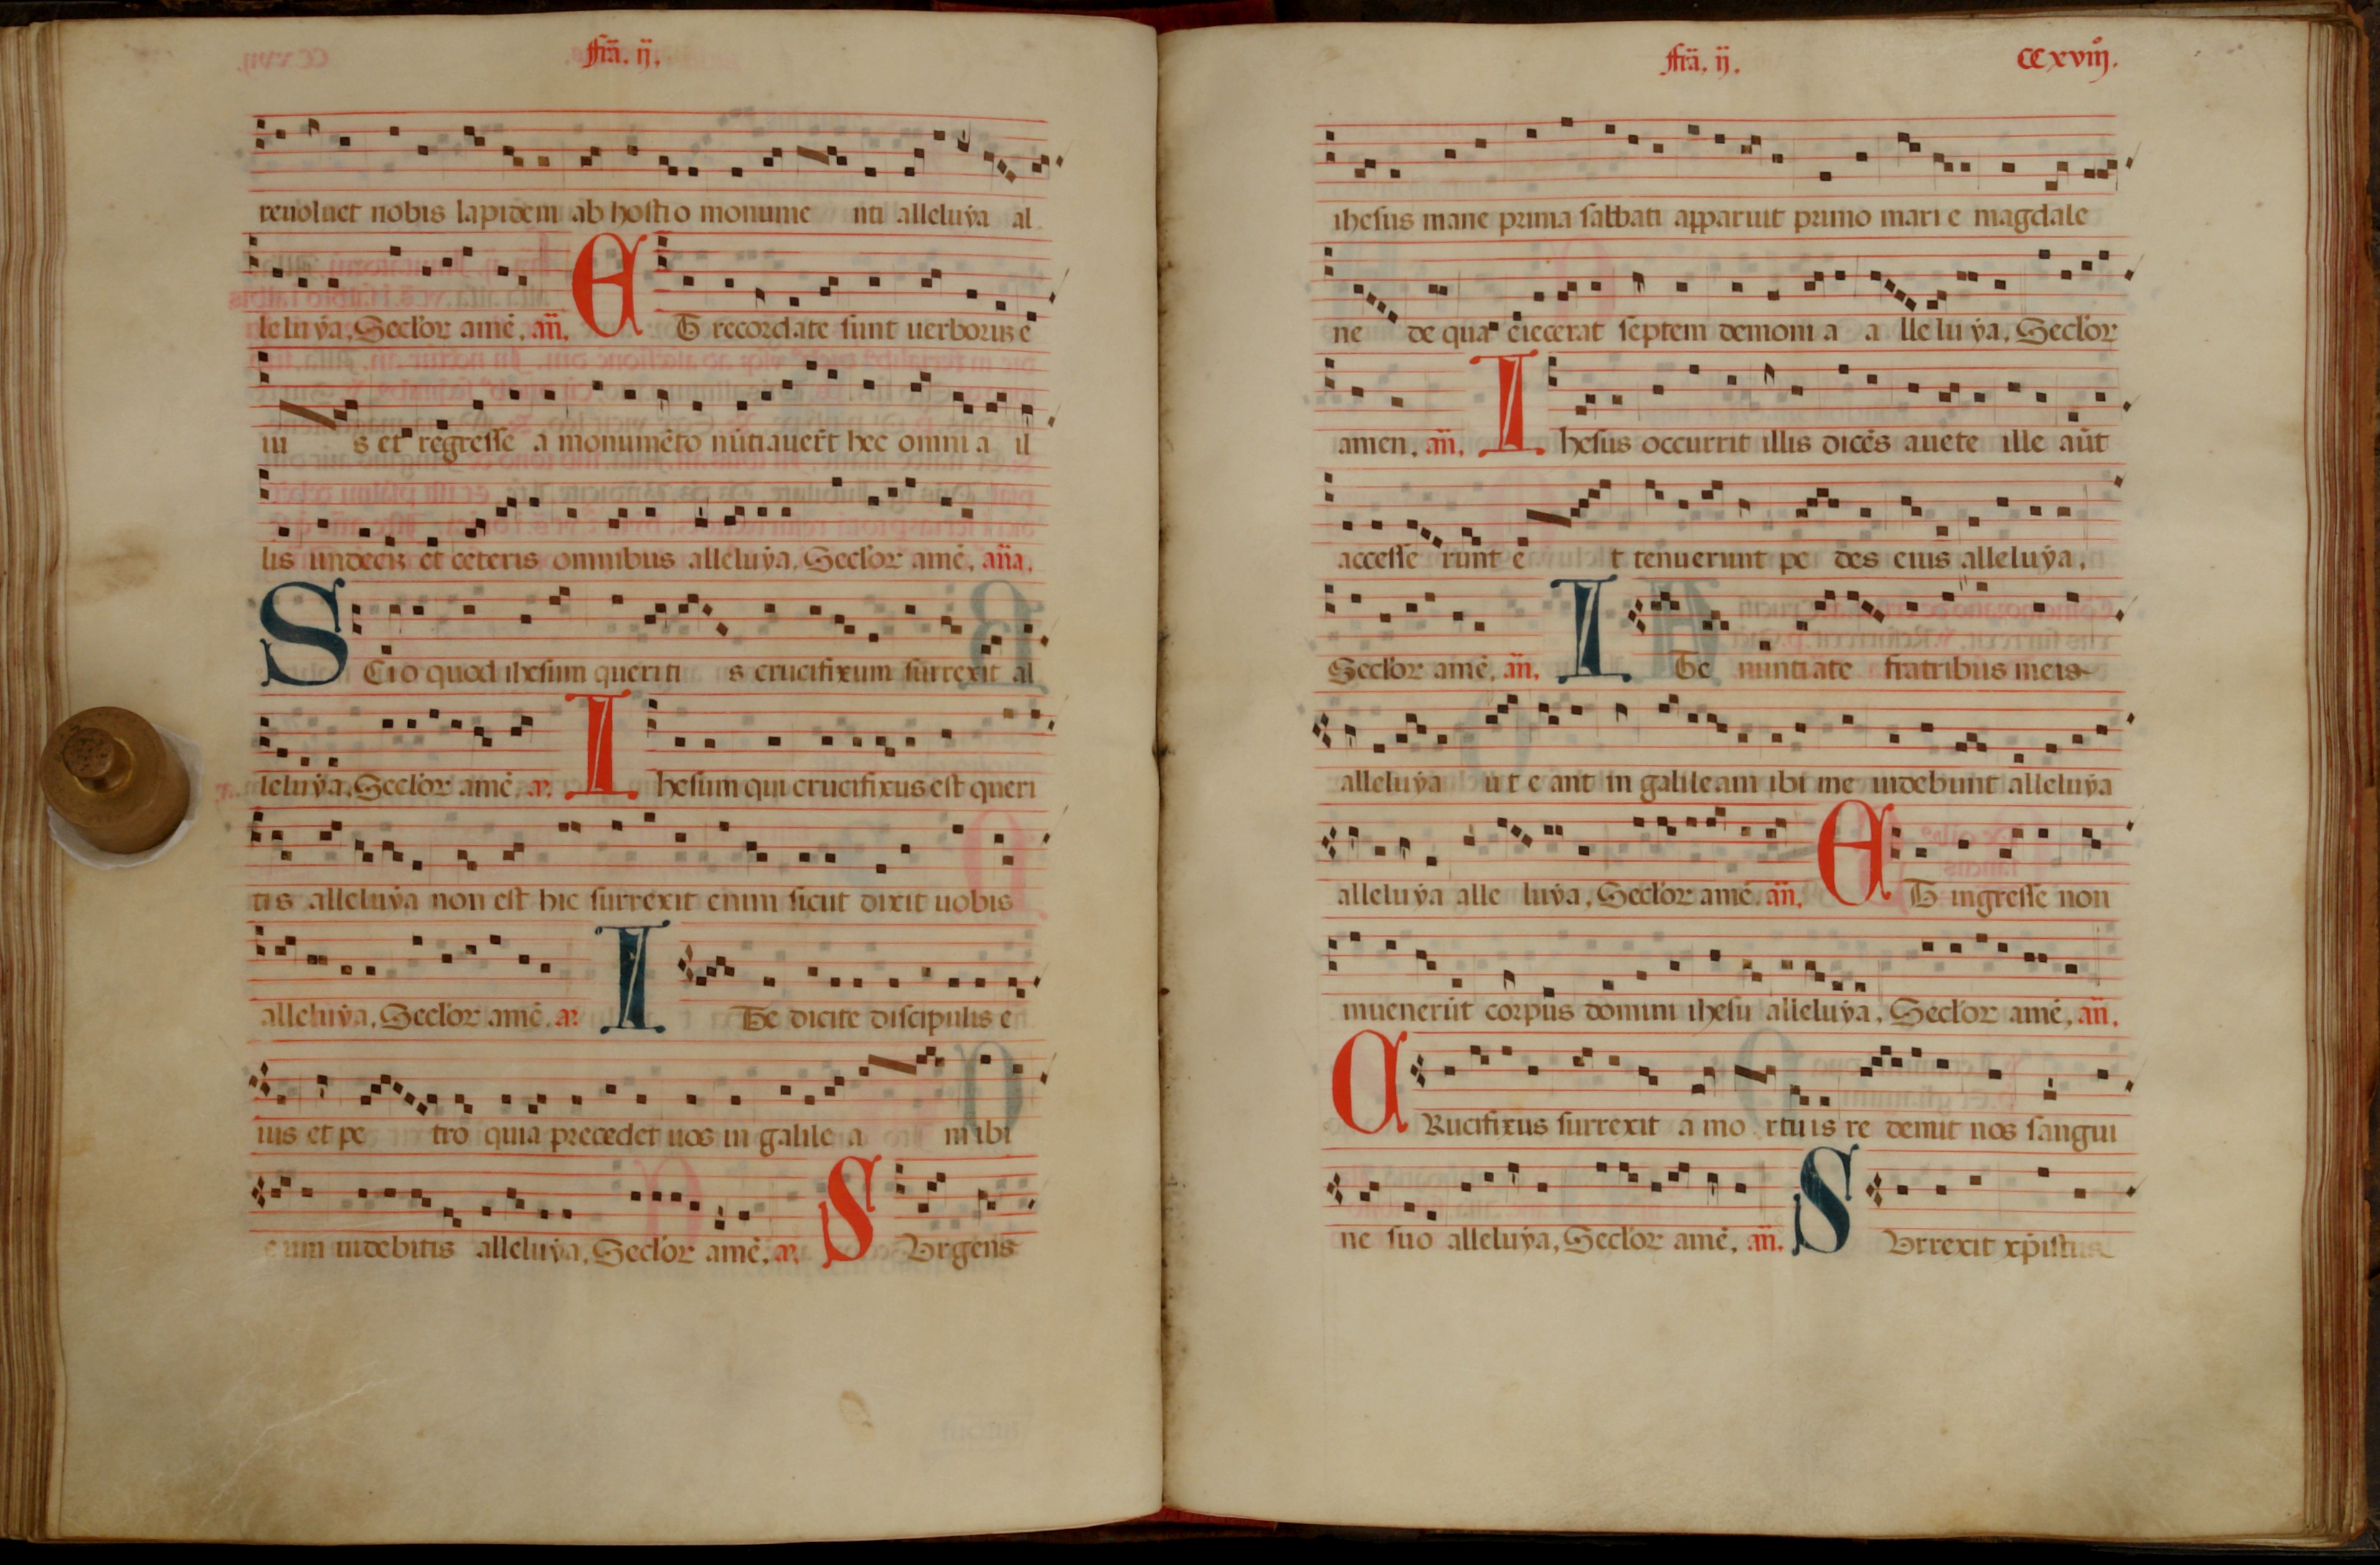 fīā. ij.
reuoluet nobis lapidem ab hostio monume nti alleluẏa al
leluẏa, Secl'or amē, an̄. ET recordate sunt uerboruꝫ e
iu s et regresse a monumēto nūtiauerūt hec omnia il
lis undeciꝫ et ceteris omnibus alleluẏa, Secl'or amē, an̄a.
SCio quod ihesum queriti s crucifixum surrexit al
leluẏa, Secl'or amē. a. Ihesum qui crucifixus est queri
tis alleluẏa non est hic surrexit enim sicut dixit uobis
alleluẏa, Secl'or amē. a. ITe dicite discipulis e
ius et pe tro quia precedet uos in galile a m ibi
eum uidebitis alleluẏa, Secl'or amē, a. SVrgens
fīā. ij. CCxviij.
ihesus mane prima sabbati apparuit primo mari e magdale
ne de qua eiecerat septem demoni a a lleluẏa, Secl'or
amen, an̄. Ihesus occurrit illis dicēs auete ille aūt
accesse runt e t tenuerunt pe des eius alleluẏa,
Secl'or amē, an̄. ITe nuntiate fratribus meis
alleluẏa ut e ant in galileam ibi me uidebunt alleluẏa
alleluẏa alle luẏa, Secl'or amē, an̄. ET ingresse non
inuenerūt corpus domini ihesu alleluẏa, Secl'or amē, an̄.
CRucifixus surrexit a mo rtuis re demit nos sangui
ne suo alleluẏa, Secl'or amē, an̄. SVrrexit xp̄istus